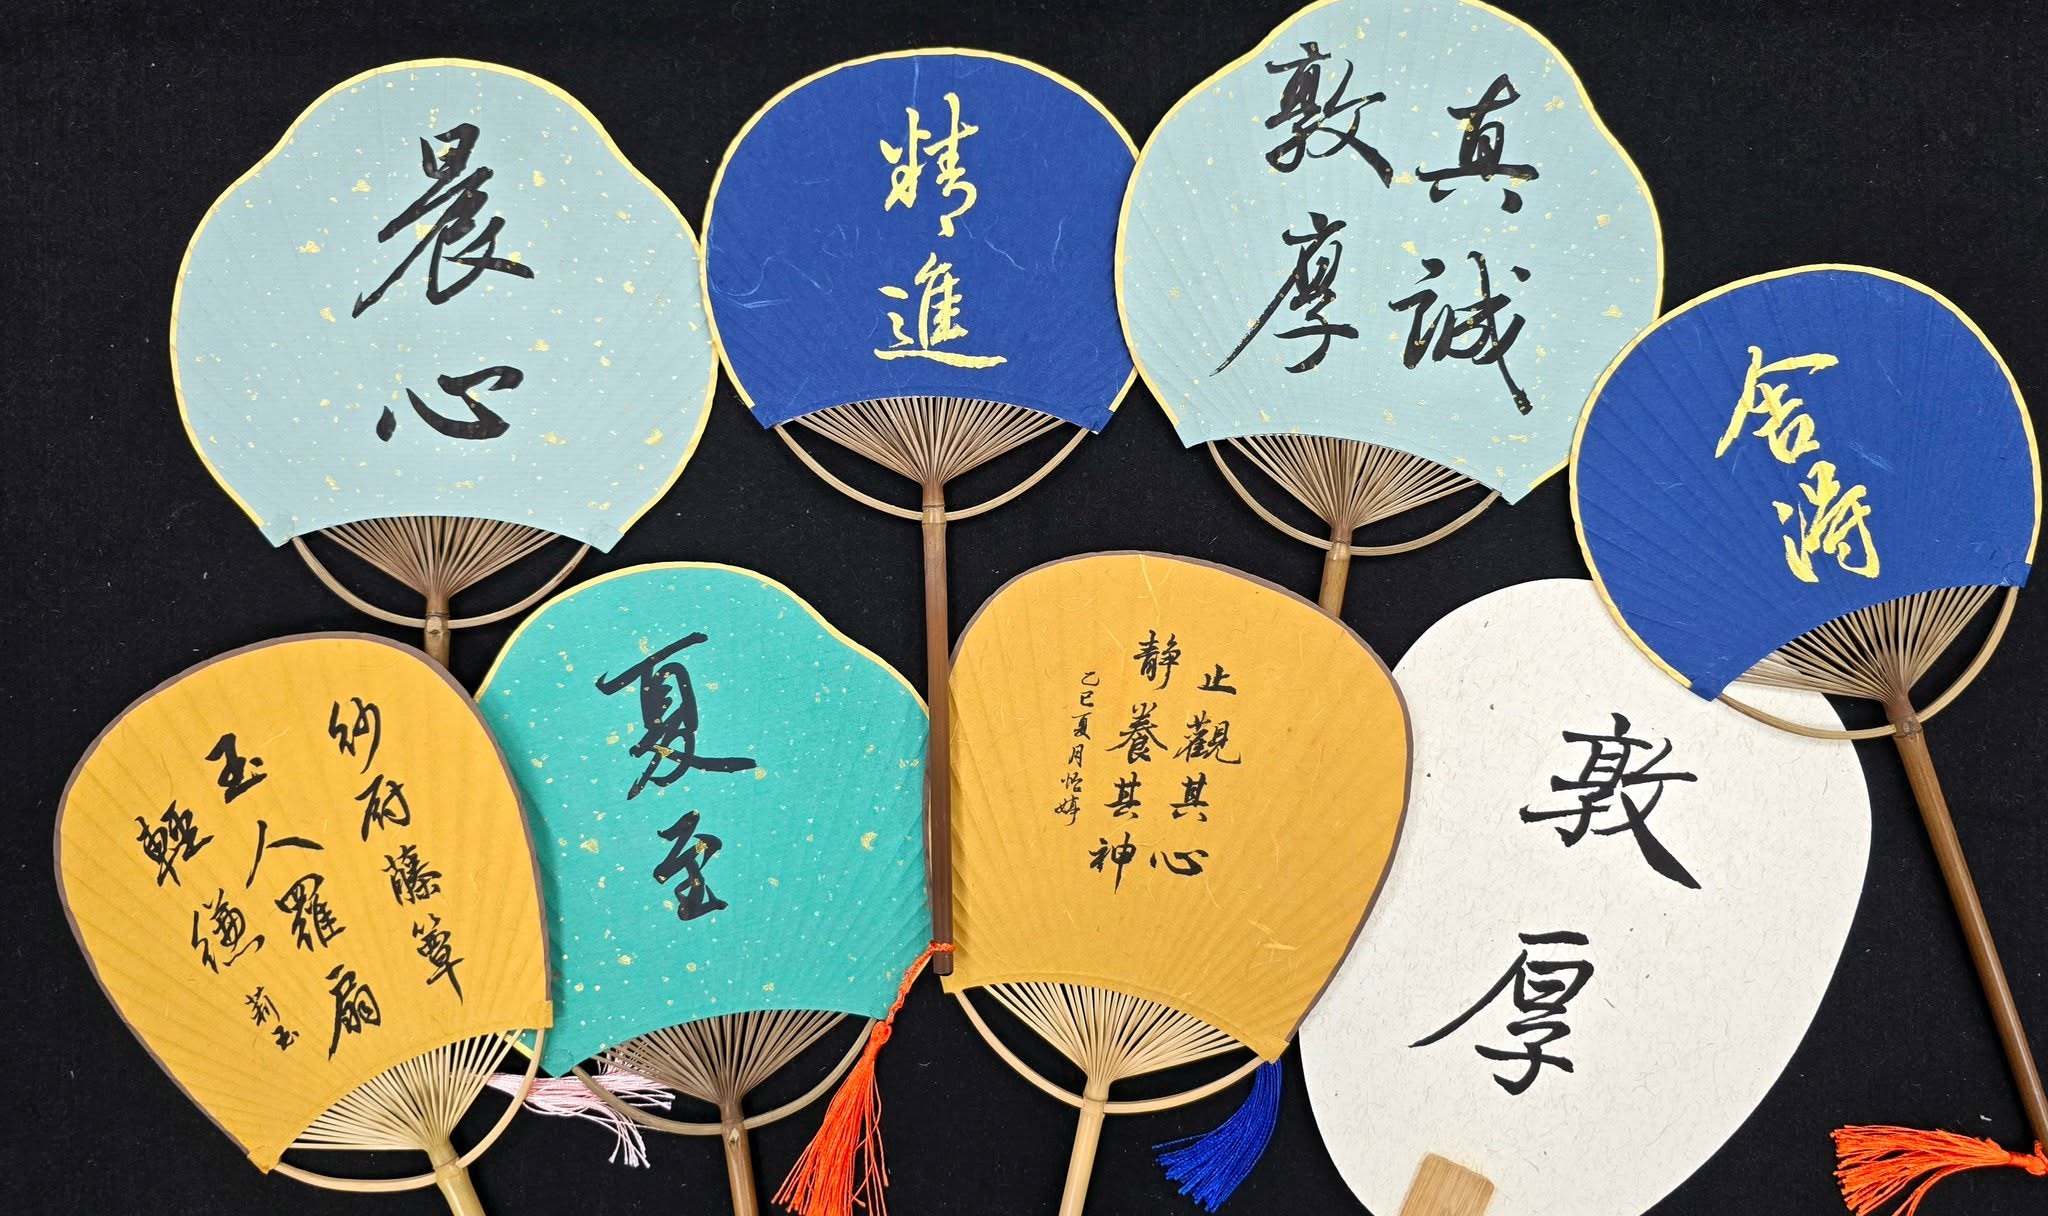 晨心
精進
真誠
敦厚
舍得
紗厨藤簟
玉人羅扇
輕縑
莉玉
夏至
止觀其心
静養其神
乙巳夏月怡婷
敦厚